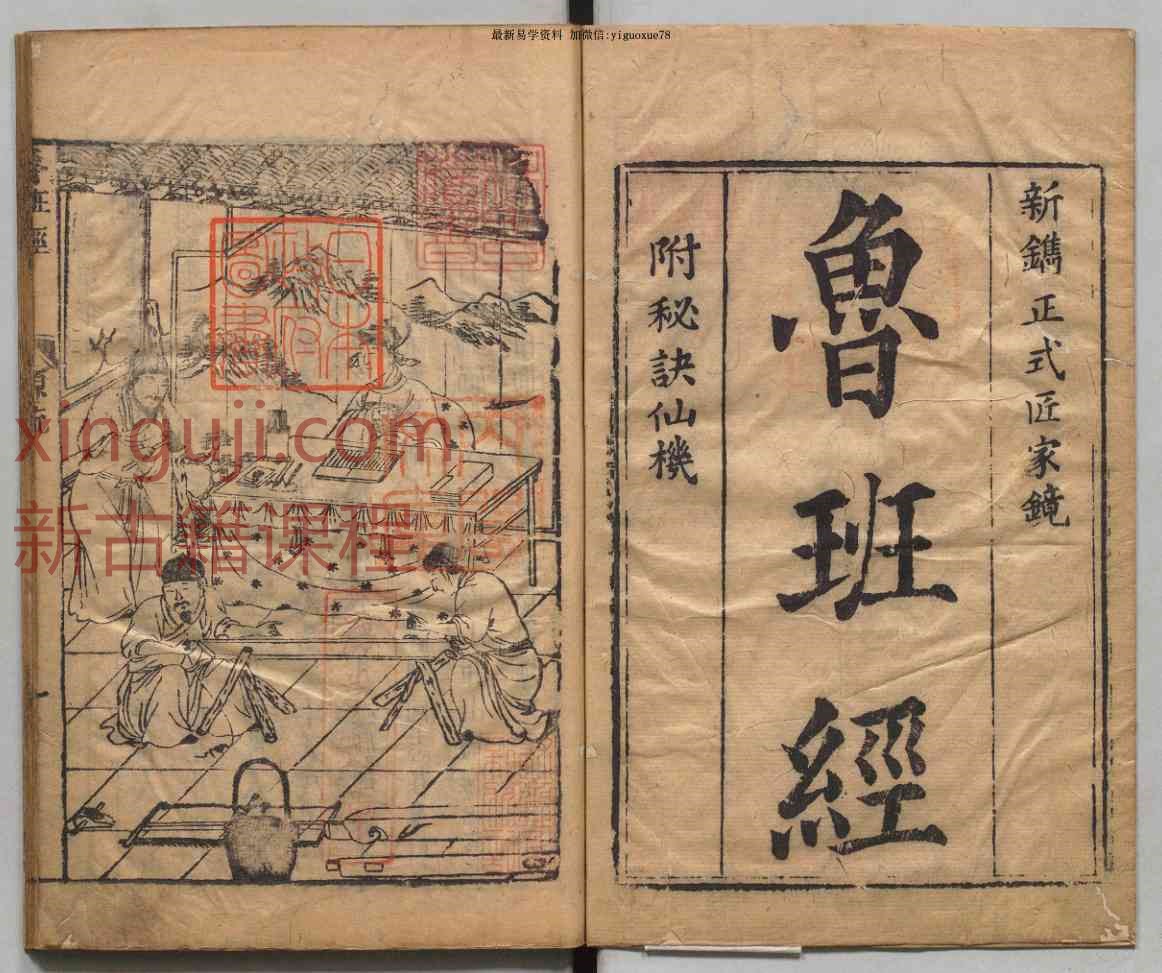 最新易学资料 加微信:yiguoxue78
新鐫正式匠家鏡
魯班經
附秘訣仙機
班經
xinguji.com
新古籍课程